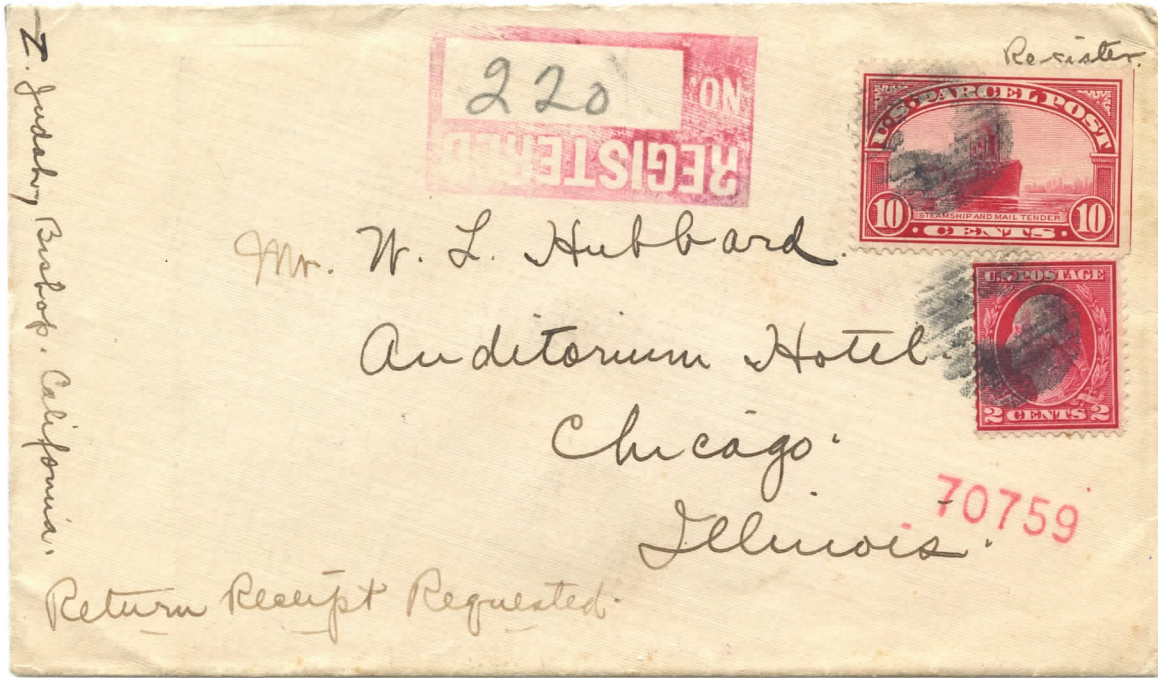 Z. Judah, Bishop. California.
REGISTERED
NO.
220
Register.
U.S. PARCEL POST
STEAMSHIP AND MAIL TENDER
10 CENTS 10
U.S. POSTAGE
2 CENTS 2
Mr. W. L. Hubbard.
Auditorium Hotel
Chicago.
Illinois.
70759
Return Receipt Requested.